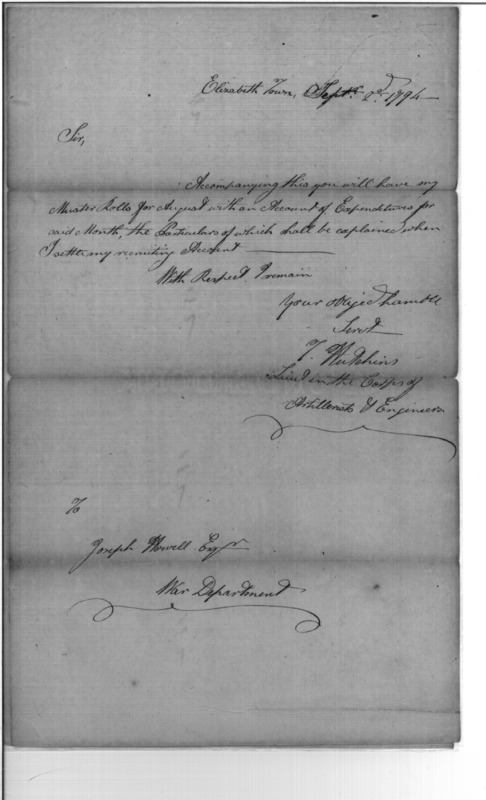 Elizabeth Town, Septr. 2d. 1794
Sir,
Accompanying this you will have my
Muster Rolls for August with an Account of Expenditures for
said Month, the Particulars of which shall be explained when
I settle my recruiting Account
With Respect I remain
Your obliged humble
Servt
T. Hutchins
Lieut in the Corps of
Artillerists & Engineers
To
Joseph Howell Esqr
War Department